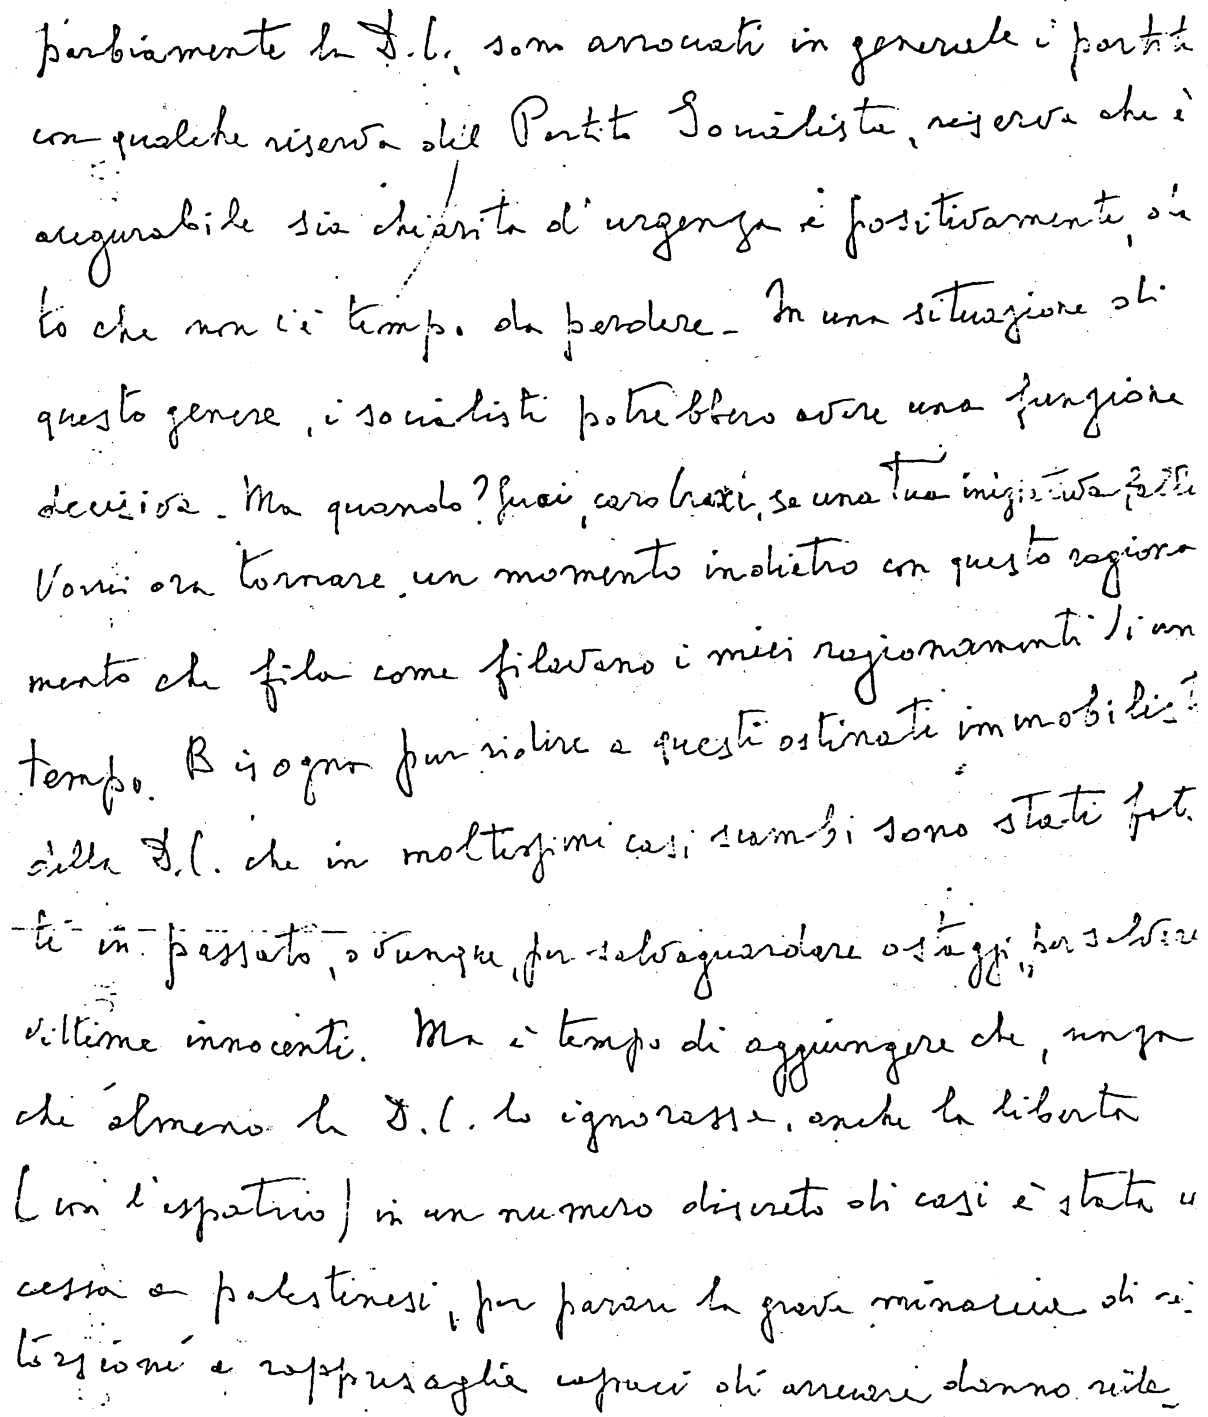 parbiamente la D.C., sono associati in generale i partiti
con qualche riserva del Partito Socialista, riserva che è
augurabile sia chiarita d'urgenza e positivamente, da
to che non c'è tempo da perdere - In una situazione di
questo genere, i socialisti potrebbero avere una funzione
decisiva - Ma quando? Guai, caro Craxi, se una Tua iniziativa
Vorrei ora tornare un momento indietro con questo ragiona
mento che fila come filavano i miei ragionamenti di un
tempo. Bisogna pur ridire a questi ostinati immobilisti
della D.C. che in moltissimi casi scambi sono stati fat.
ti in passato, ovunque, per salvaguardare ostaggi, per salvare
vittime innocenti. Ma è tempo di aggiungere che, senza
che almeno la D.C. lo ignorasse, anche la libertà
(con l'espatrio) in un numero discreto di casi è stata con
cessa a palestinesi, per parare la grave minaccia di ri
torsioni e rappresaglie capaci di arrecare danno rile-